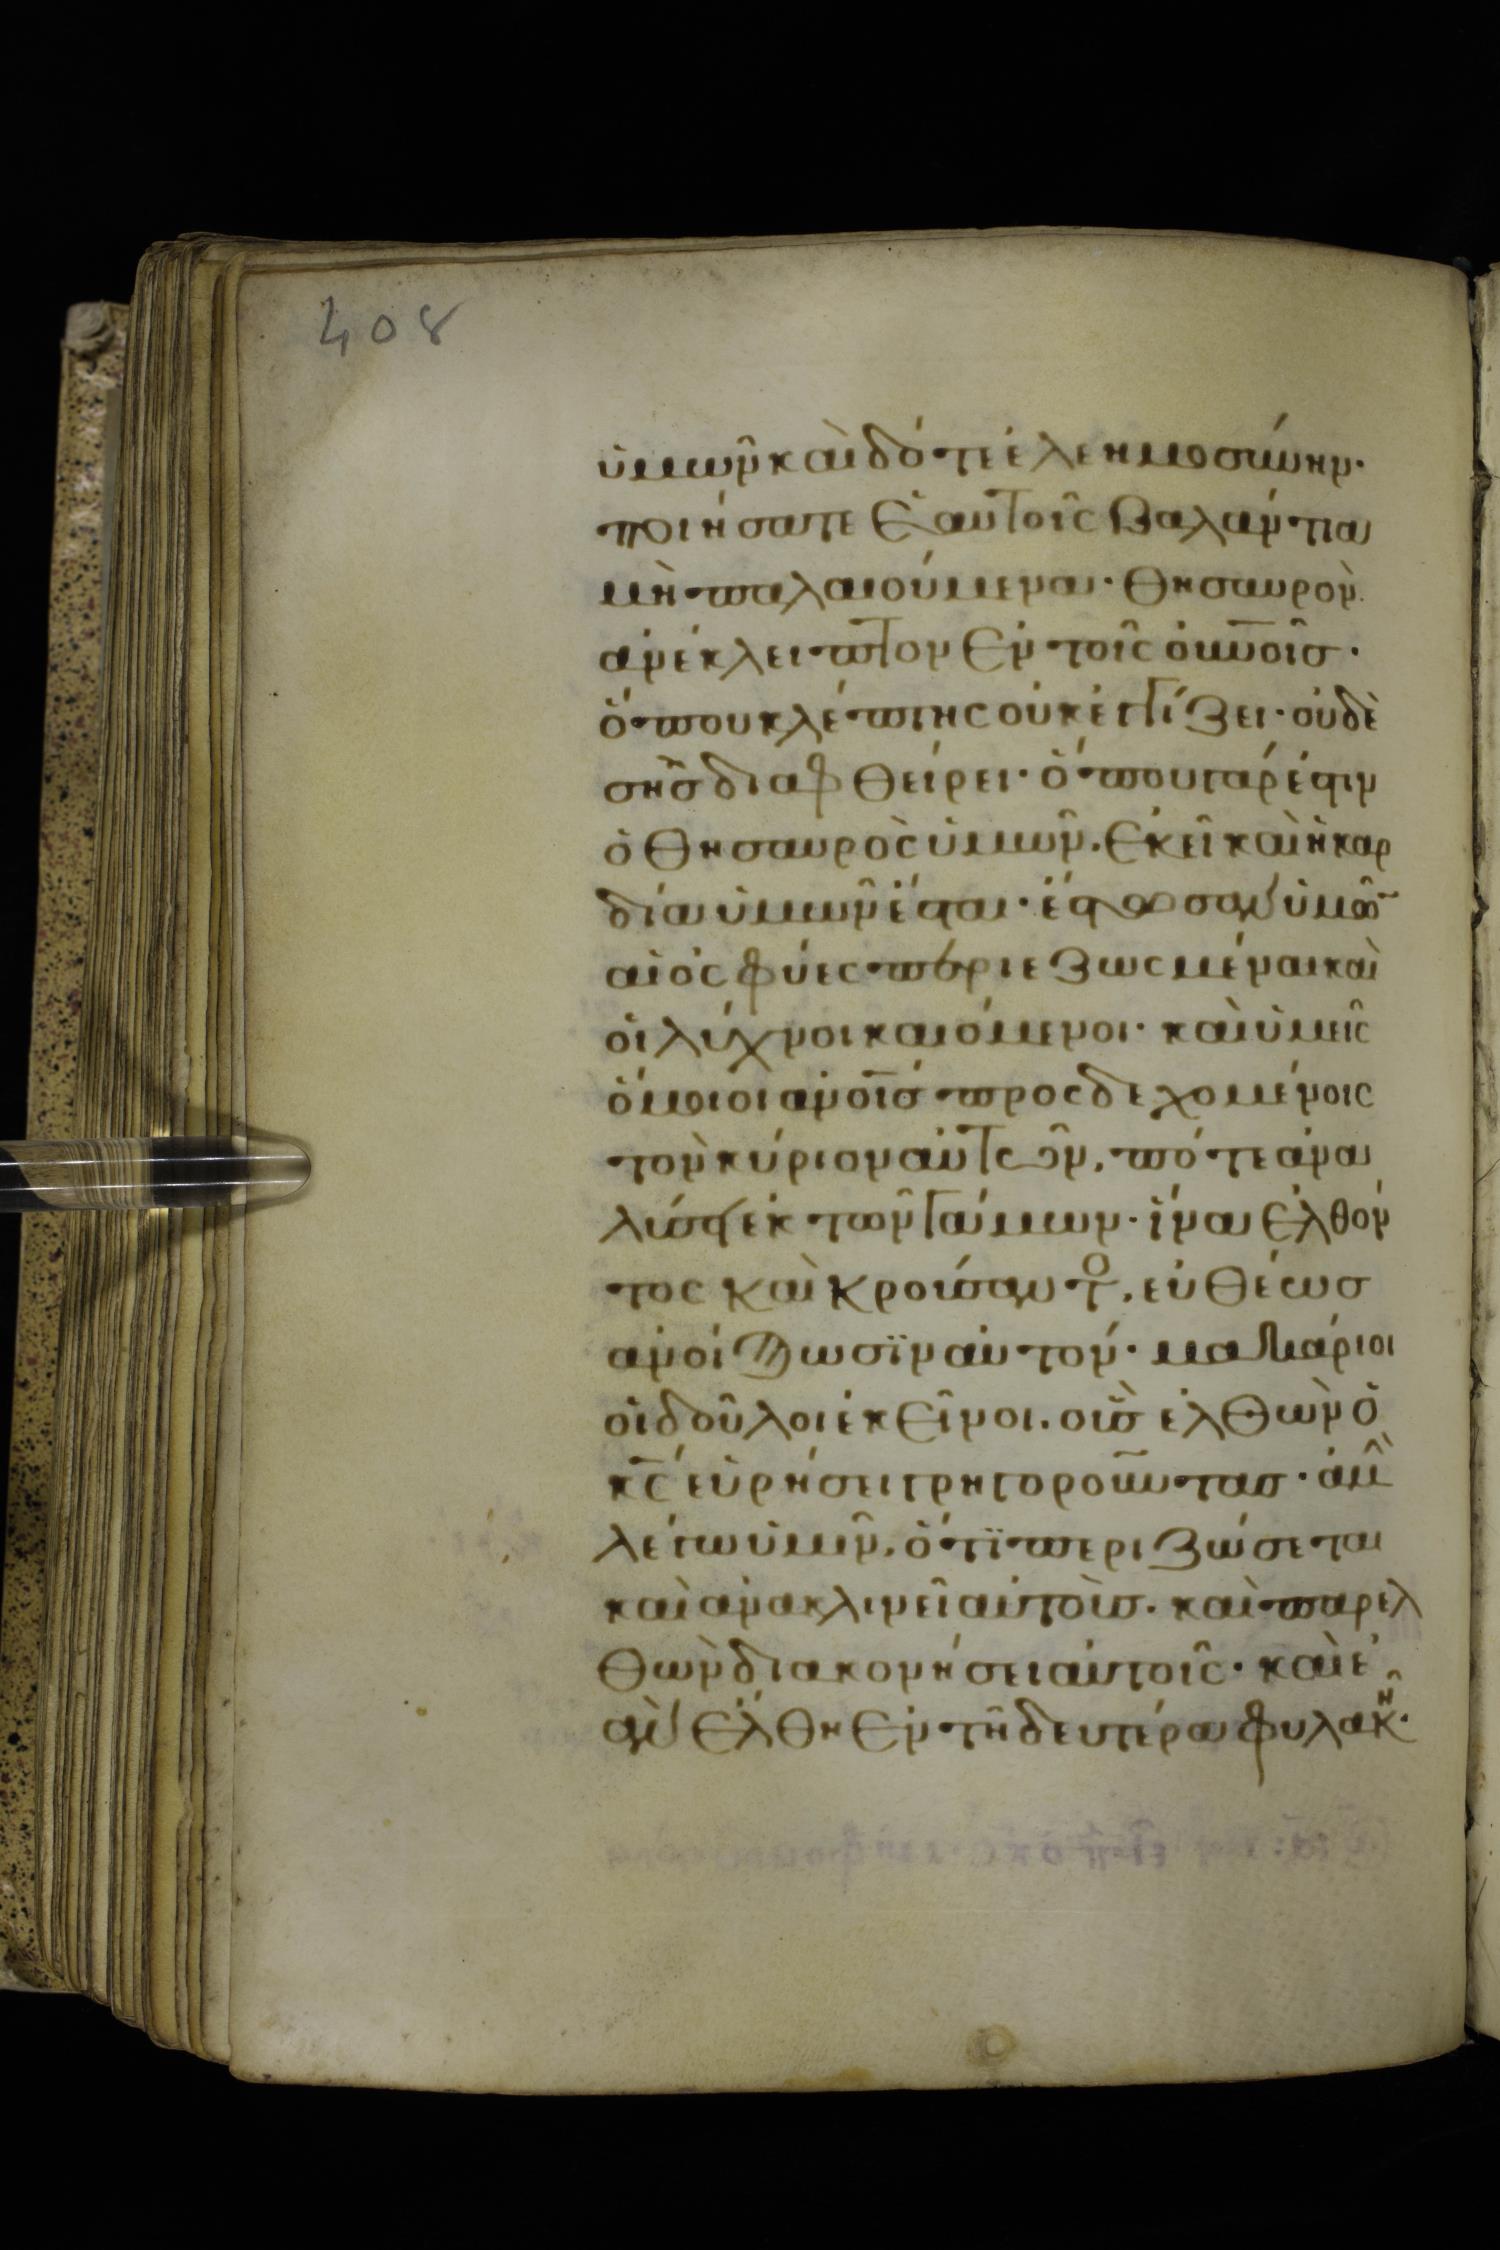 408
ὑμῶν καὶ δότε ἐλεημοσύνην·
ποιήσατε ἑαυτοῖς βαλάντια
μὴ παλαιούμενα· θησαυρὸν
ἀνέκλειπτον ἐν τοῖς οὐνοῖς·
ὅπου κλέπτης οὐκ ἐγγίζει· οὐδὲ
σὴς διαφθείρει· ὅπου γάρ ἐστιν
ὁ θησαυρὸς ὑμῶν, ἐκεῖ καὶ ἡ καρ
δία ὑμῶν ἔσται· ἔστωσαν ὑμῶν
αἱ ὀσφύες περιεζωσμέναι καὶ
οἱ λύχνοι καιόμενοι· καὶ ὑμεῖς
ὅμοιοι ἀνοῖς προσδεχομένοις
τὸν κύριον αὐτῶν, πότε ἀνα
λύσῃ ἐκ τῶν γάμων· ἵνα ἐλθόν
τος καὶ κρούσαντο, εὐθέως
ἀνοίξωσϊν αὐτόν· μακάριοι
οἱ δοῦλοι ἐκεῖνοι, οὓς ἐλθὼν ὁ
κς εὑρήσει γρηγοροῦντας· ἀμὴν
λέγω ὑμῖν, ὅτϊ περιζώσεται
καὶ ἀνακλινεῖ αὐτοὺς· καὶ παρελ
θὼν διακονήσει αὐτοῖς· καὶ ἐ
ὰν ἔλθη ἐν τῆ δευτέρα φυλακῆ·